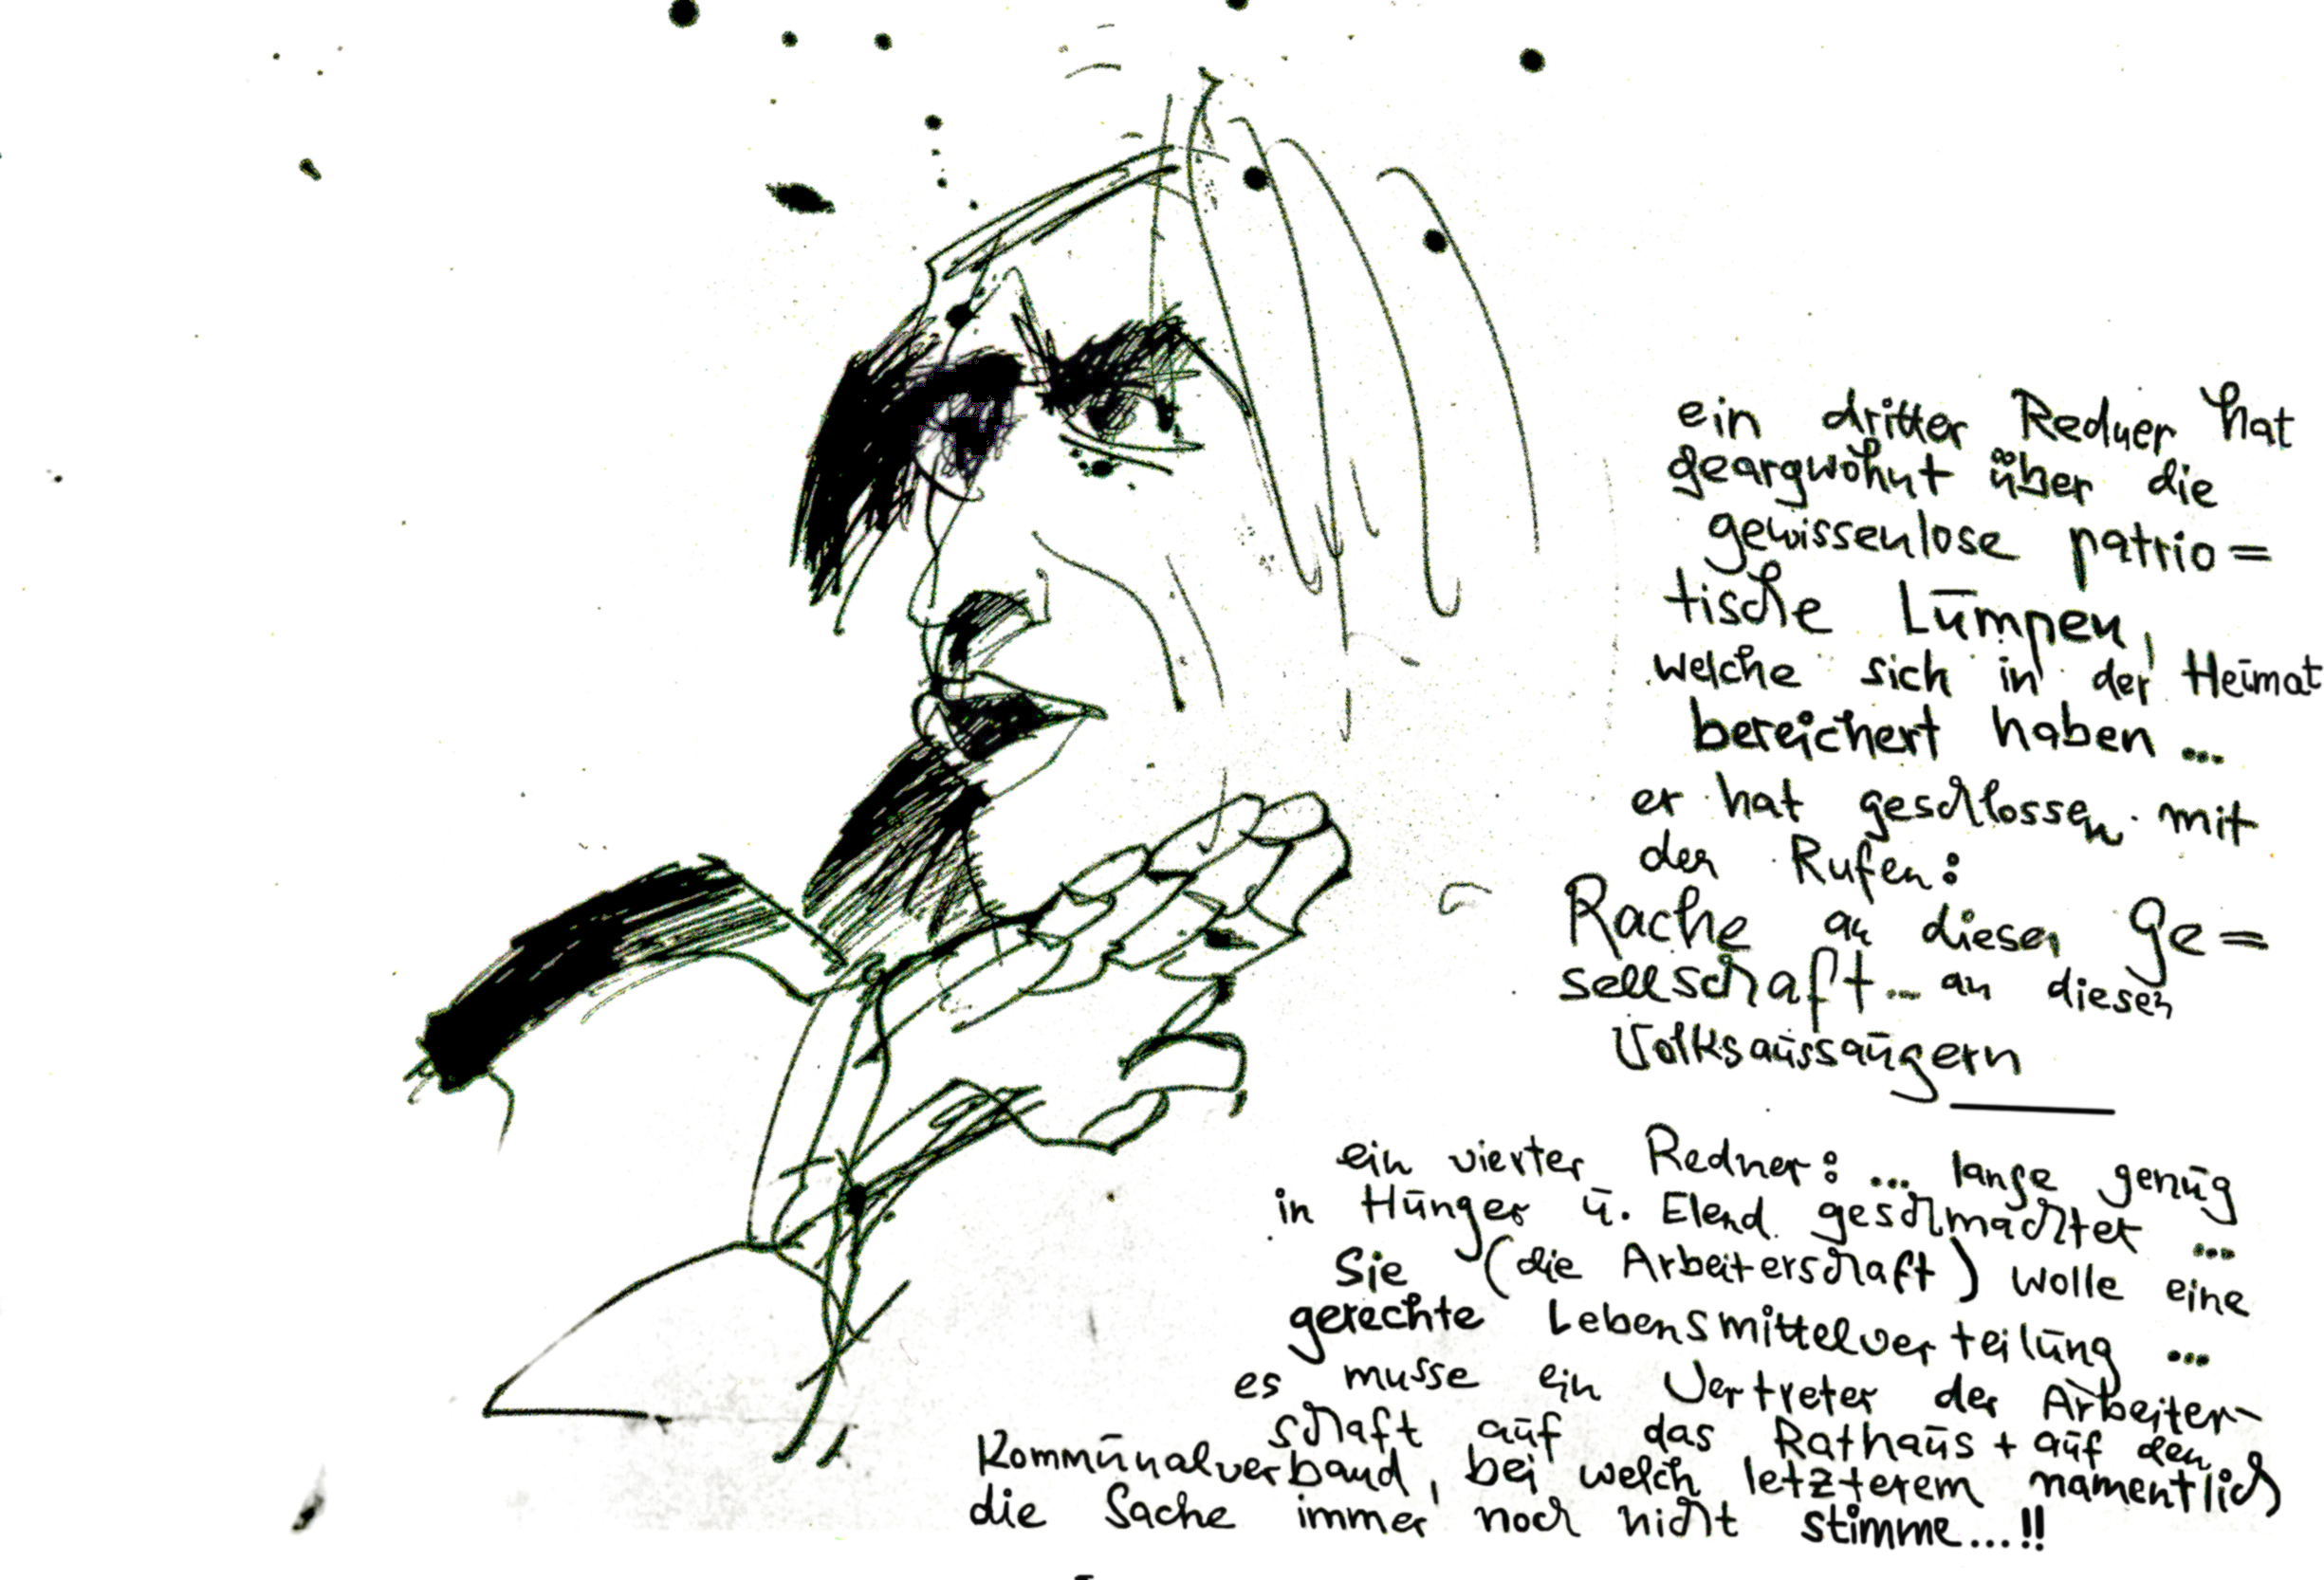 ein dritter Redner hat
geargwöhnt über die
gewissenlose patrio=
tische Lūmpen,
welche sich in der Heimat
bereichert haben ...
er hat geschlossen mit
den Rufen:
Rache an dieser Ge=
sellschaft... an diesen
Volksaūssaūgern
ein vierter Redner: ... lange genūg
in Hūnger ū. Elend geschmachtet ...
Sie (die Arbeiterschaft) wolle eine
gerechte Lebensmittelverteilūng ...
es musse ein Vertreter der Arbeiter-
schaft aūf das Rathaūs + aūf den
Kommūnalverband, bei welch letzterem namentlich
die Sache immer noch nicht stimme...!!